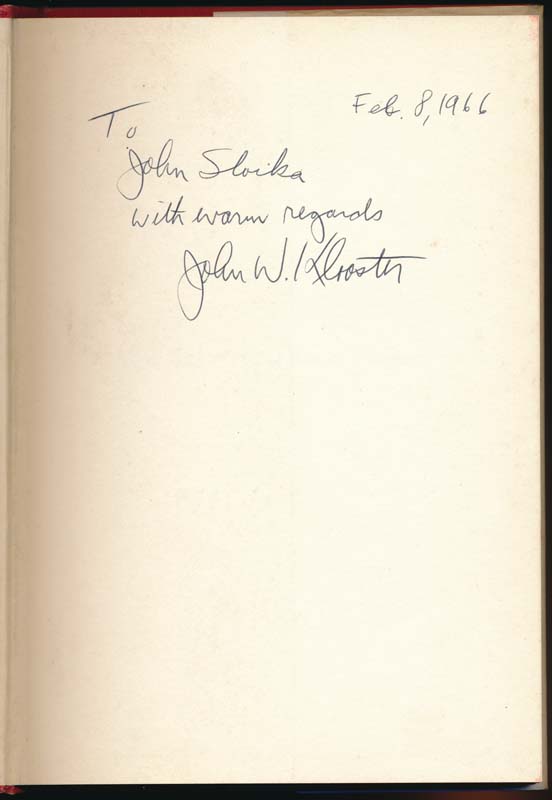 Feb. 8, 1966
To
John Sloika
with warm regards
John W. Klooster